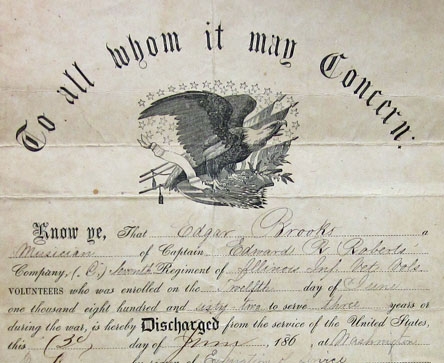 To all whom it may Concern:
Know ye, That Edgar Brooks a
Musician of Captain Edward R Roberts'
Company, (C,) Seventh Regiment of Illinois Inf. Vet. Vols
VOLUNTEERS who was enrolled on the Twelfth day of June
one thousand eight hundred and sixty two to serve three years or
during the war, is hereby Discharged from the service of the United States,
this day of June 186 , at Washington